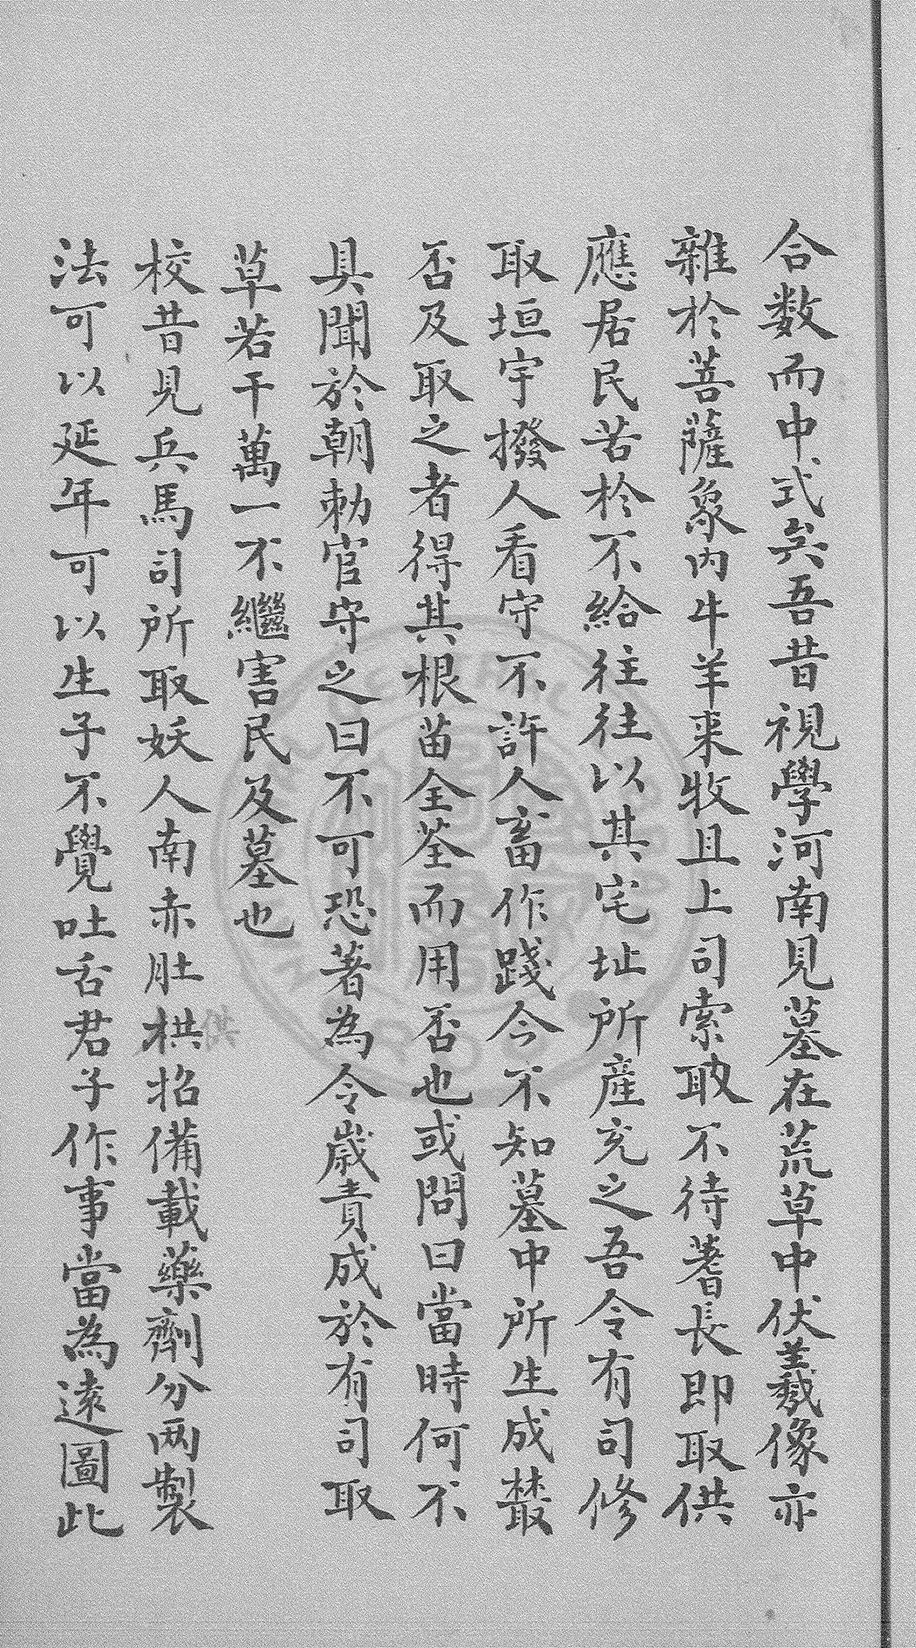 合数而中式矣吾昔視學河南見墓在荒草中伏羲像亦
雜於菩薩象内牛羊来牧且上司索取不待蓍長即取供
應居民苦於不給往往以其宅址所産充之吾令有司修
取垣宇撥人看守不許人畜作踐今不知墓中所生成叢
否及取之者得其根苗全荃而用否也或問曰當時何不
具聞於朝勅官守之曰不可恐著為令歳責成於有司取
草若干萬一不繼害民及墓也
校昔見兵馬司所取妖人南赤肚栱招備載藥劑分两製
供
法可以延年可以生子不覺吐舌君子作事當為遠圖此